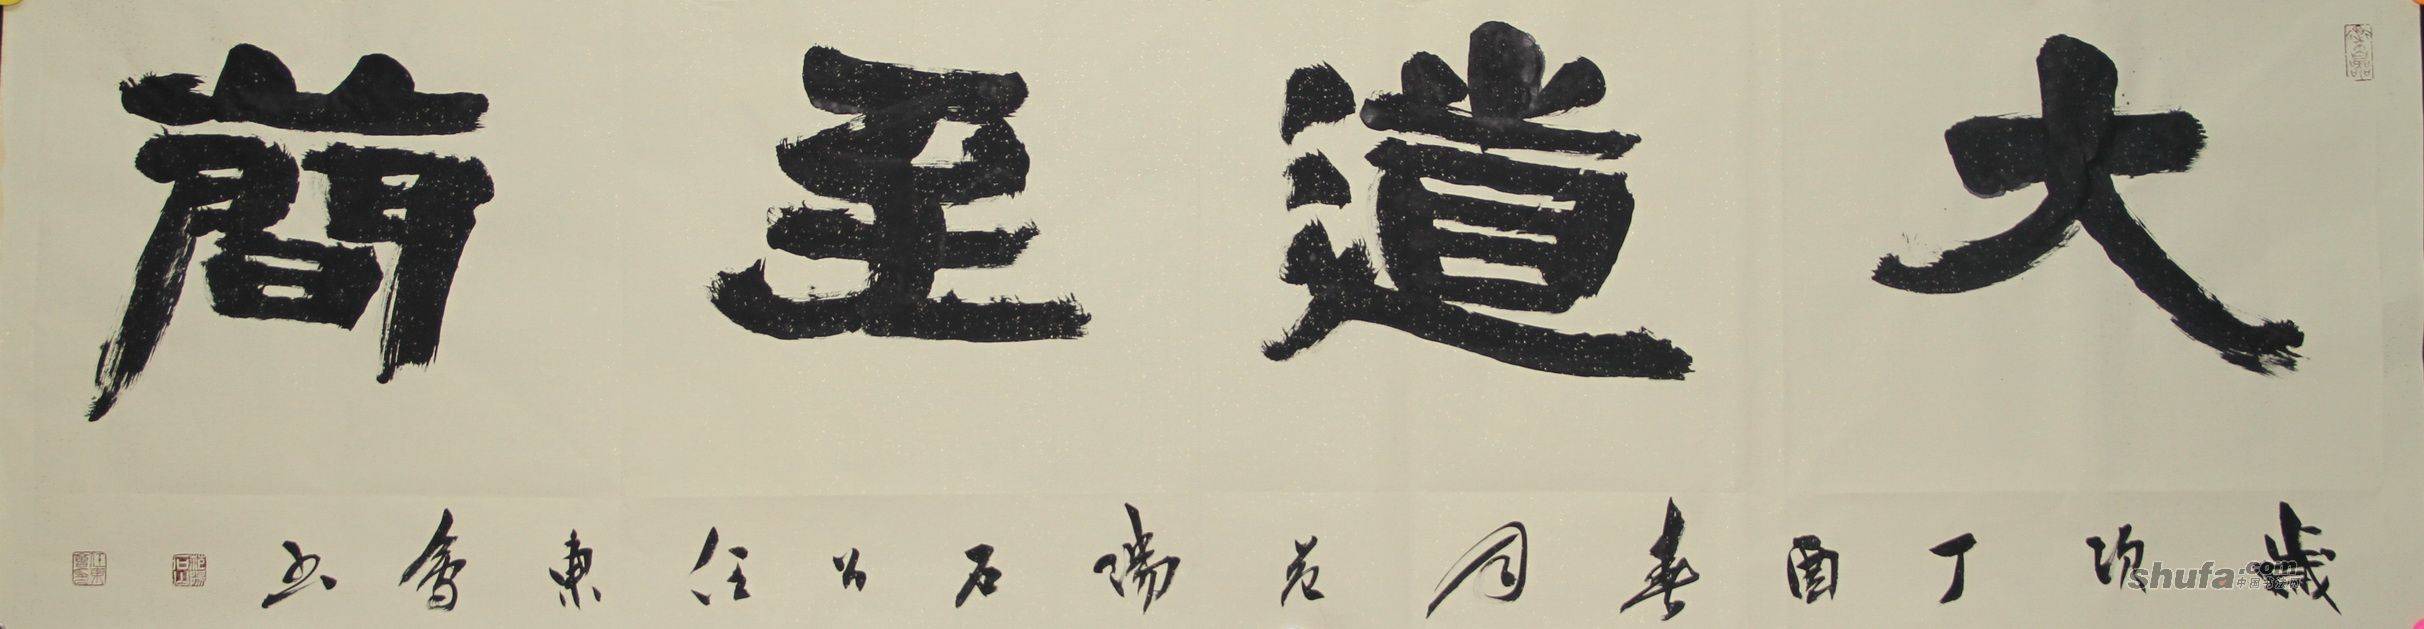 大道至簡
歲次丁酉春月范陽石公任東會书
shufa.com
中国书法网